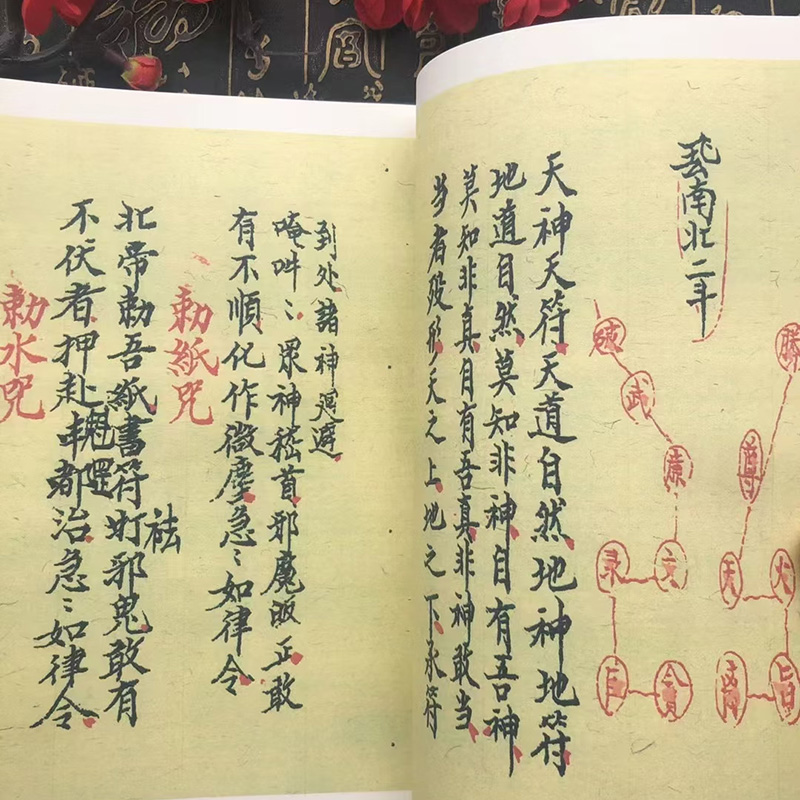 南北二斗
尊
天 火
破
武
廉
文
录
巨
貪
天神天符天道自然地神地符
地道自然莫知非神自有吾神
莫知非真自有吾真非神敢当
当者殁形天之上地之下承符
到处諸神避
唵吽〻眾神嵇首邪魔皈正敢
有不順化作微塵急〻如律令
勅紙咒
北帝勅吾紙書符打邪鬼敢有
祛
不伏者押赴都治急〻如律令
勅水咒